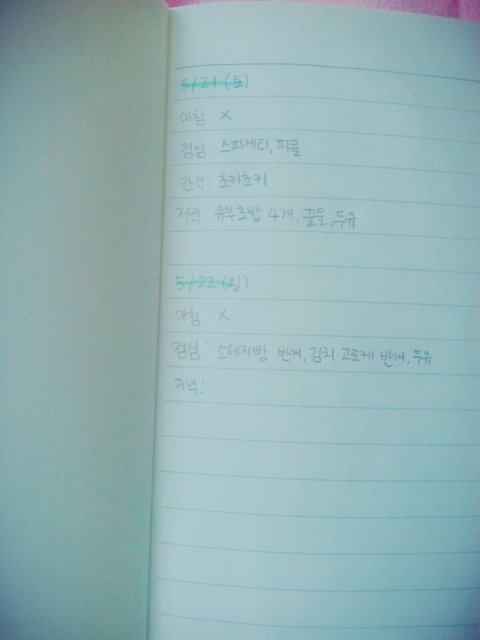 5/21 (토)
아침 X
점심: 스파게티, 피클
간식: 초키초키
저녁: 유부초밥 4개, 꿀물, 두유
5/22 (일)
아침 X
점심: 소세지빵 반개, 김치 고로케 반개, 두유
저녁: